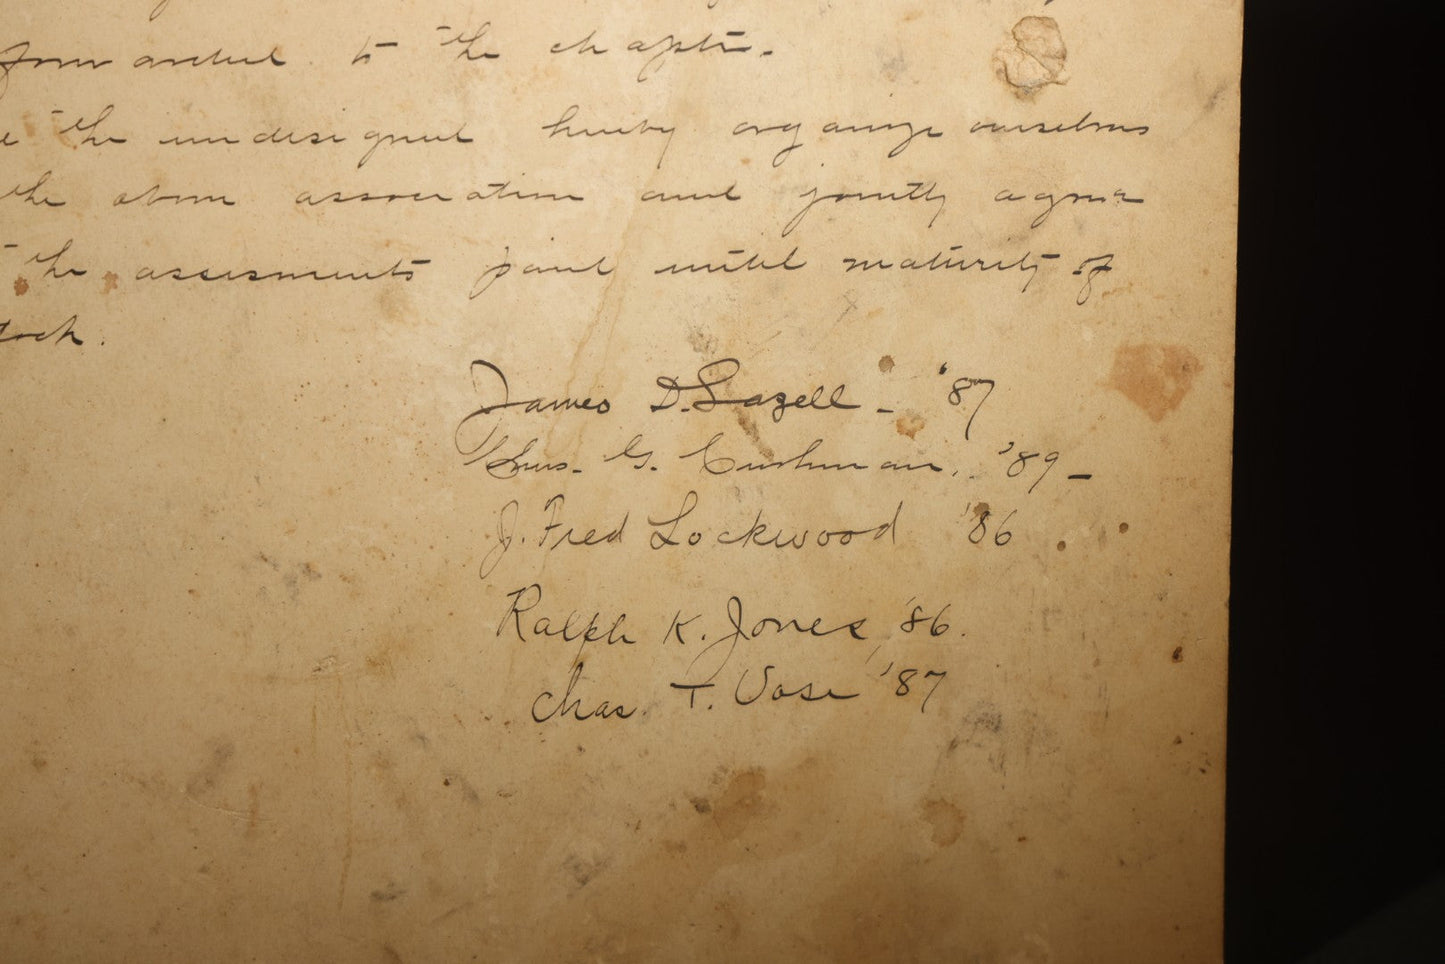 forwarded to the chapter.
the undersigned hereby organize ourselves
the above association and jointly agree
the assessments paid until maturity of
stock.
James D. Lazell - '87
Thos. G. Cushman. '89 -
J. Fred Lockwood '86
Ralph K. Jones, '86.
Chas. T. Vose '87